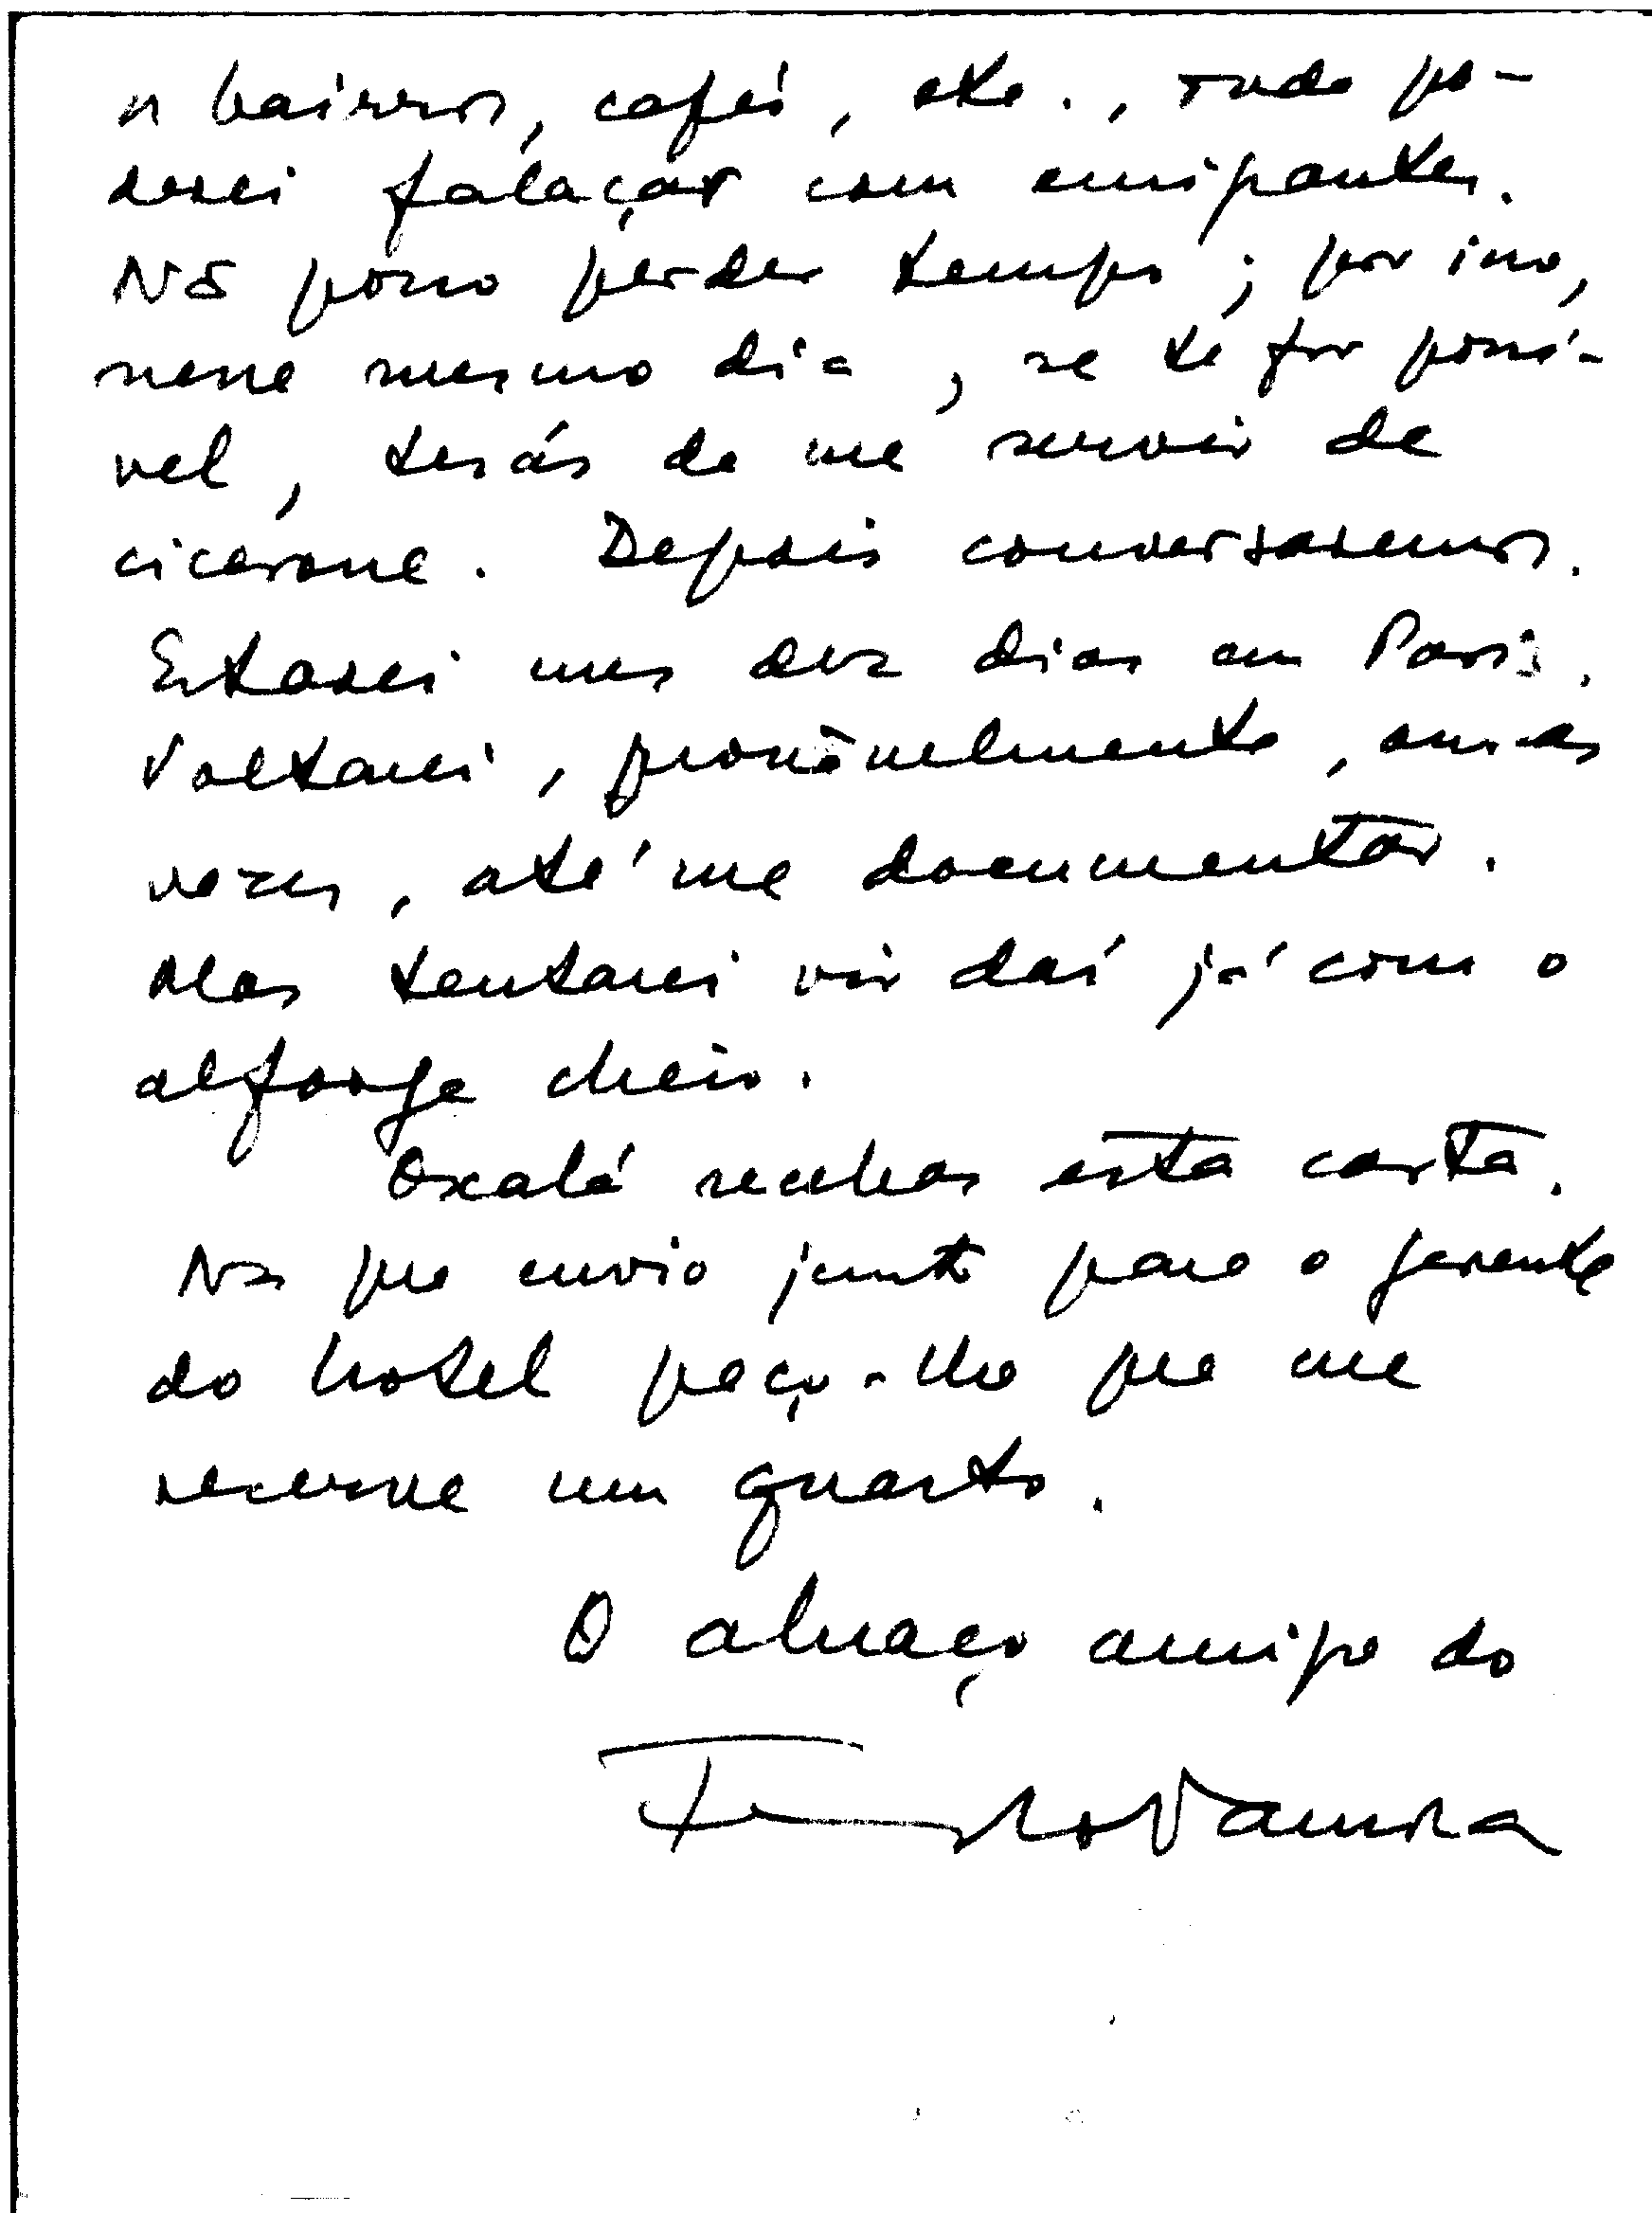 os bairros, cafés, etc., onde po-
derei falaçar com emigrantes.
Não posso perder tempo; por isso,
nesse mesmo dia, se te for possí-
vel, terás de me servir de
cicerone. Depois conversaremos.
Estarei uns dez dias em Paris.
Voltarei, provàvelmente, as
vezes, até me documentar.
Mas tentarei vir daí já com o
alforge cheio.
Oxalá recebas esta carta.
Na que envio junto para o gerente
do hotel peço-lhe que me
reserve um quarto.
O abraço amigo do
Fernando Namora